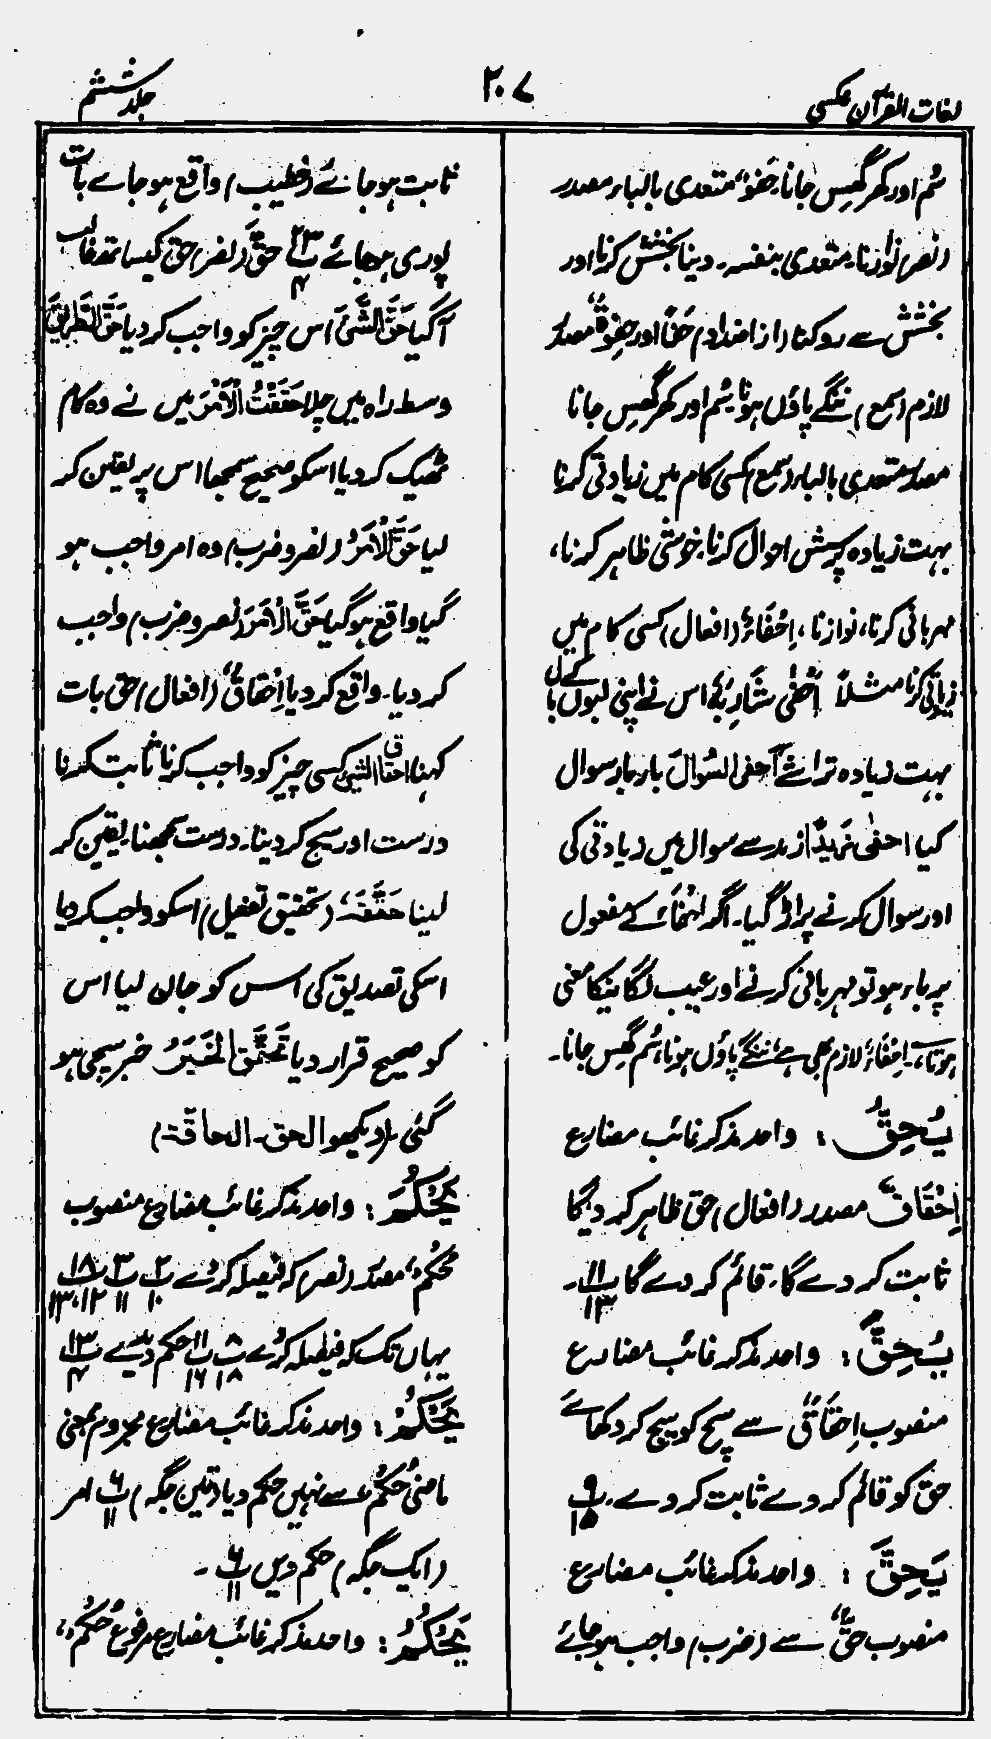 لغات القرآن عکسی
۲۰۷
جلد ششم
سُم اور کھر گھِس جانا، حَفْوٌ، متعدی بالباء مصدر
(نصر) نوازنا۔ متعدی بنفسہ۔ دینا بخشش کرنا اور
بخشش سے روکنا (از اضداد) حَفًا اور حِفْوَۃٌ مصدر
لازم (سمع) ننگے پاؤں ہونا سُم اور کھر گھِس جانا
مصدر متعدی بالباء (سمع) کسی کام میں زیادتی کرنا
بہت زیادہ پرسش احوال کرنا، خوشی ظاہر کرنا،
مہربانی کرنا، نوازنا، اِحْفَاءٌ (افعال) کسی کام میں
زیادتی کرنا مثلاً اَحْفٰی شَارِبَہٗ اس نے اپنی لبوں کے بال
بہت زیادہ تراشے اَحفی السُّوالَ بار بار سوال
کیا احفٰی زیدًا زید سے سوال میں زیادتی کی
اور سوال کرنے پر اڑ گیا۔ اگر احفاء کے مفعول
پر باء ہو تو مہربانی کرنے اور عیب لگانیکا معنی
ہوتا ہے۔ اِحْفَاءٌ لازم بھی ہے، ننگے پاؤں ہونا، سُم گھِس جانا۔
یُحِقُّ : واحد مذکر غائب مضارع
اِحْقَاقٌ مصدر (افعال) حق ظاہر کر دیگا
ثابت کر دے گا۔ قائم کر دے گا پ ۱۱/۱۳۔
یُحِقَّ : واحد مذکر غائب مضارع
منصوب اِحْقَاقٌ سے سچ کو سچ کر دکھائے
حق کو قائم کر دے ثابت کر دے۔ پ ۹/۱۵
یَحِقَّ : واحد مذکر غائب مضارع
منصوب حَقٌّ سے (ضرب) واجب ہو جائے
ثابت ہو جائے (خطیب) واقع ہو جائے بات
پوری ہو جائے پ ۲۳/۴ حَقَّ (نصر) حق کیساتھ غالب
آ گیا حَقَّ الشَّیَٔ اس چیز کو واجب کر دیا حَقَّ الطَّرِیْقَ
وسط راہ میں چلا حَقَقْتُ الْاَمْرَ میں نے وہ کام
ٹھیک کر دیا اسکو صحیح سمجھا اس پر یقین کر
لیا حَقَّ الْاَمْرُ (نصر و ضرب) وہ امر واجب ہو
گیا واقع ہو گیا حَقَّ الْاَمْرَ (نصر و ضرب) واجب
کر دیا۔ واقع کر دیا اِحْقَاقٌ (افعال) حق بات
کہنا احقاق الشیئ کسی چیز کو واجب کرنا ثابت کرنا
درست اور سچ کر دینا۔ درست سمجھنا یقین کر
لینا حَقَّقَہٗ (تحقیق تفعیل) اسکو واجب کر دیا
اسکی تصدیق کی اس کو جان لیا اس
کو صحیح قرار دیا تَحَقَّقَ الْخَبَرُ خبر سچی ہو
گئی (دیکھو الحق۔ الحاقۃ)
یَحْکُمَ : واحد مذکر غائب مضارع منصوب
حُکْمٌ مصدر (نصر) کہ فیصلہ کر دے پ ۲/۱۰ پ ۳/۱۱ پ ۱۸/۱۲، ۱۳
یہاں تک کہ فیصلہ کر دے پ ۸/۱۸ پ ۱۱/۱۶ حکم دیدے پ ۱۳/۴
یَحْکُمْ : واحد مذکر غائب مضارع مجزوم بمعنی
ماضی حُکْمٌ سے نہیں حکم دیا (تین جگہ) پ ۶/۱۱ امر
(ایک جگہ) حکم دیں پ ۶/۱۱۔
یَحْکُمُ : واحد مذکر غائب مضارع مرفوع حُکْمٌ،